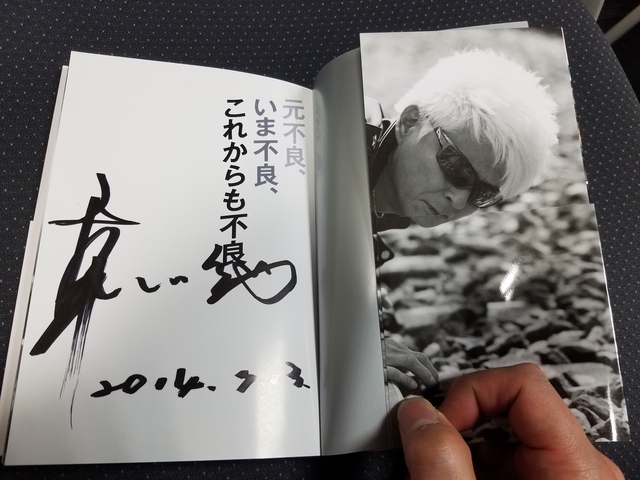 元不良、
いま不良、
これからも不良
2014.7.3